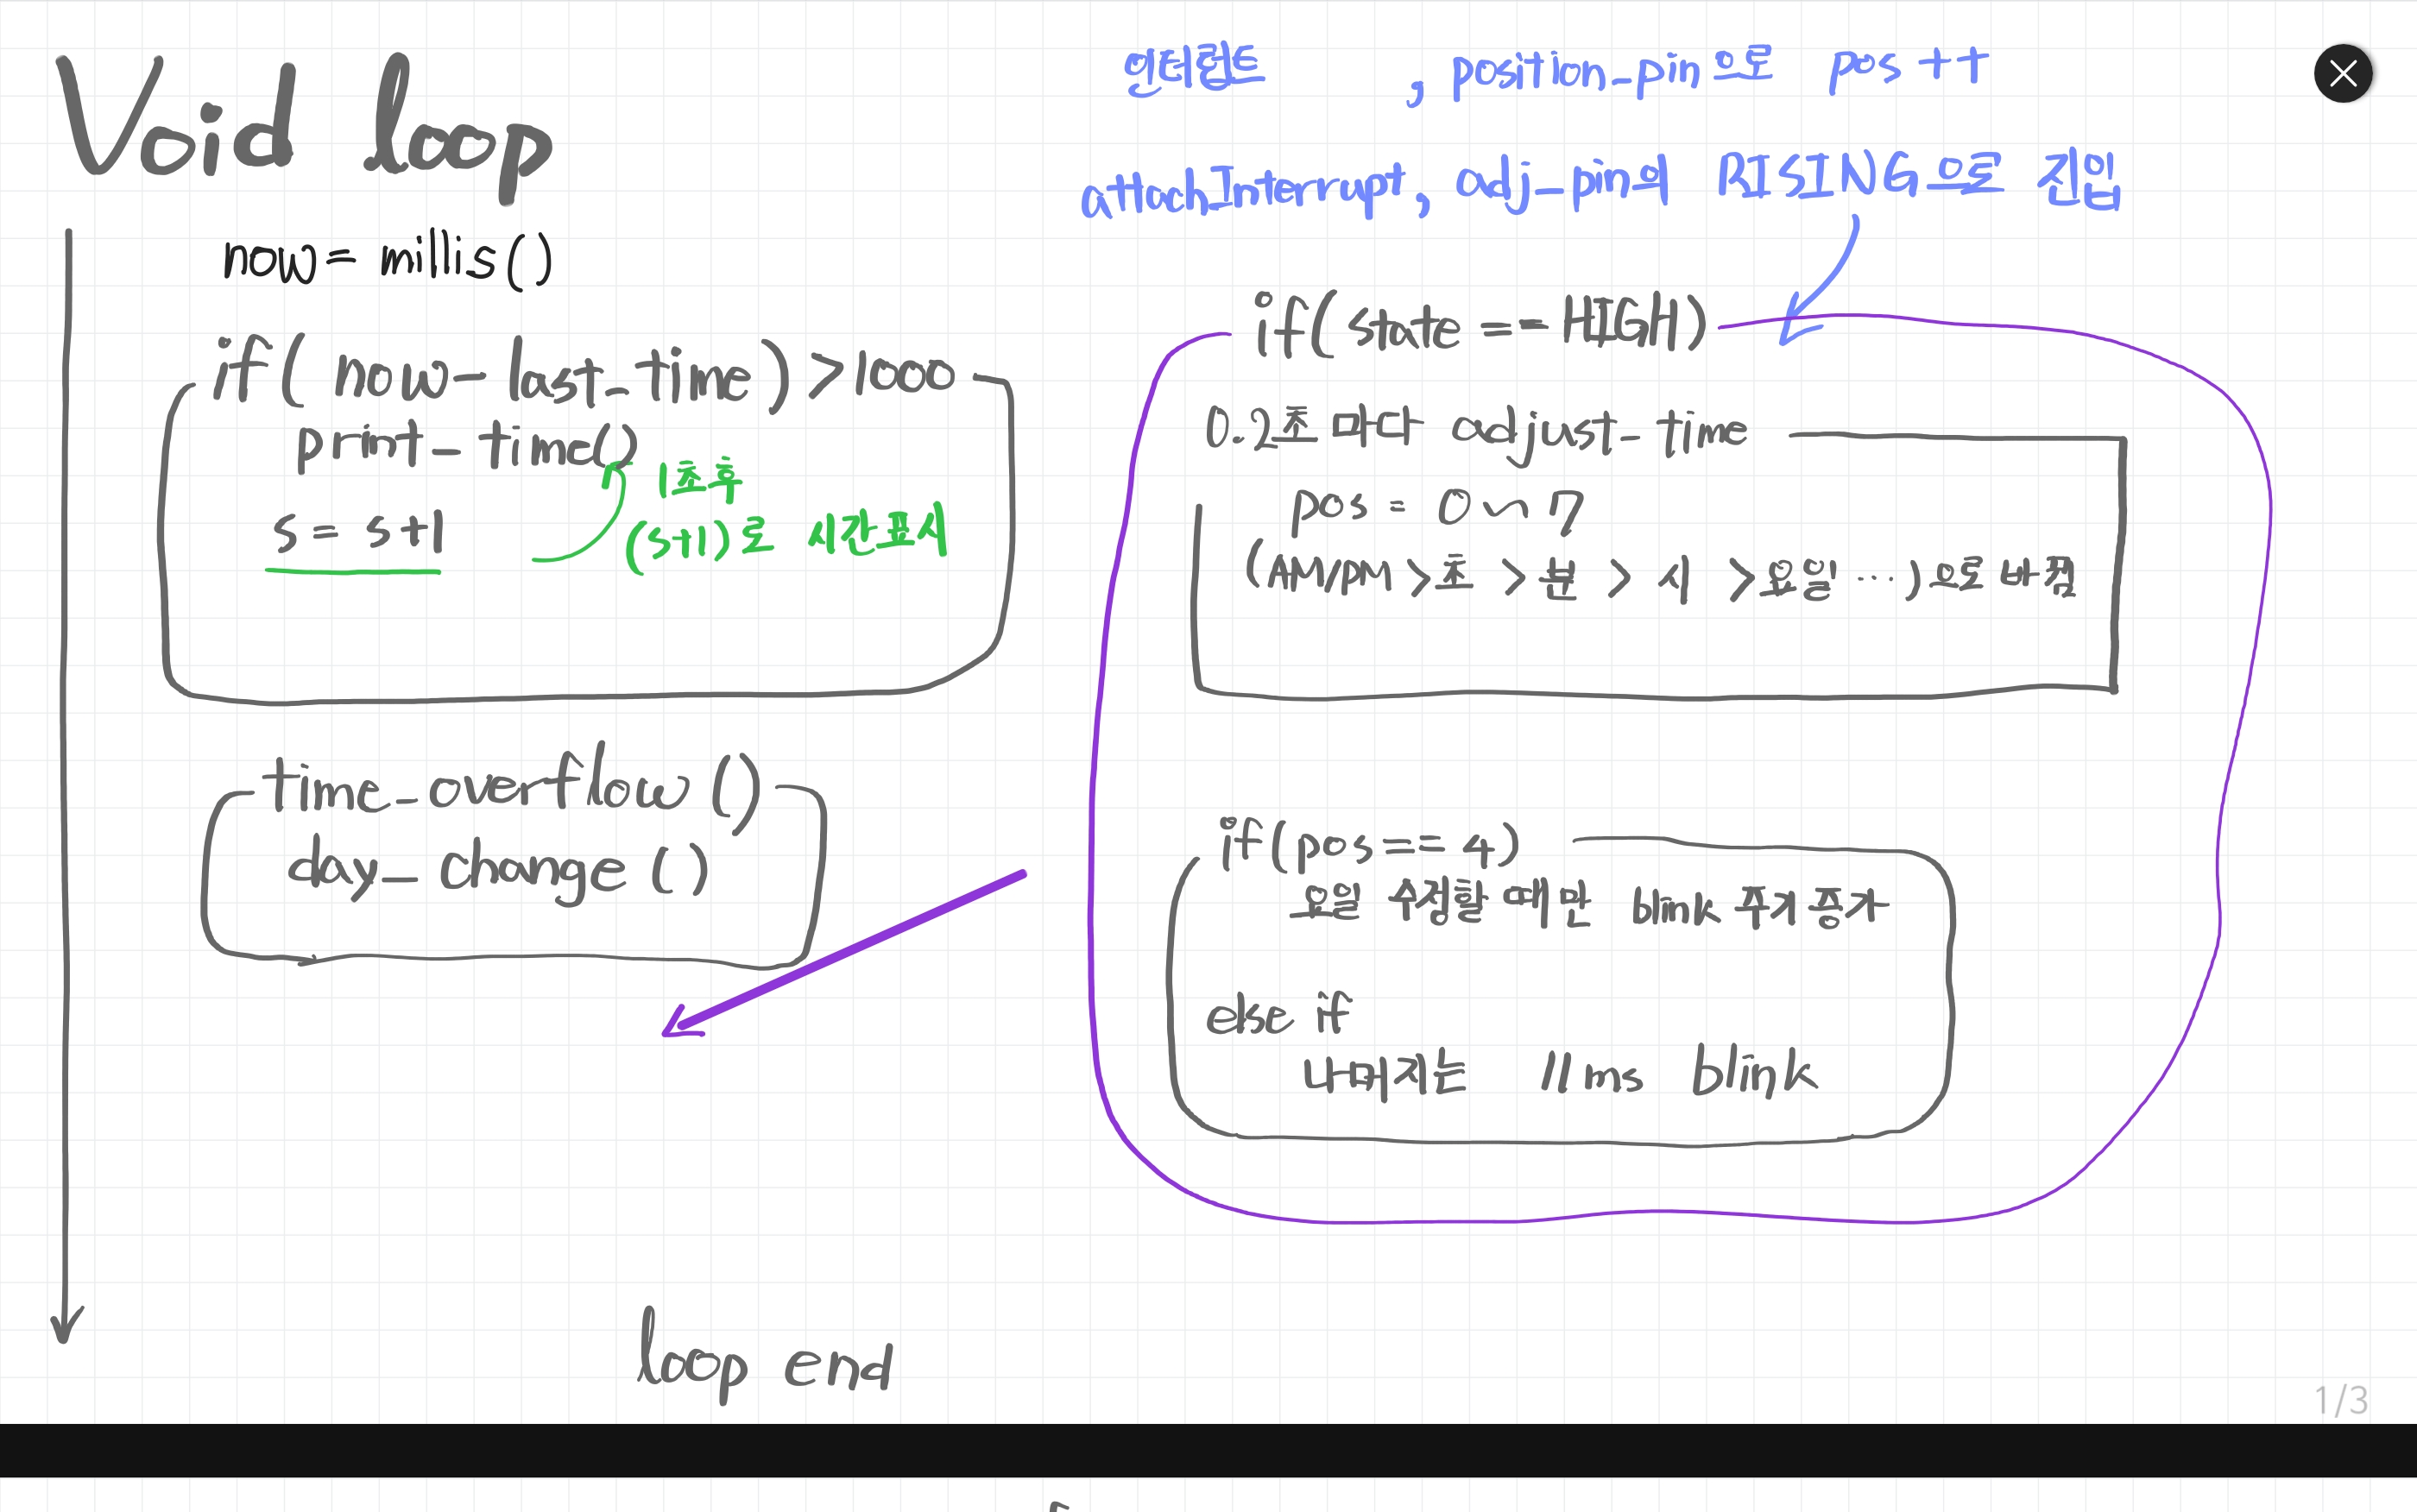 Void loop
now= millis()
if( now- last_time) >1000
print_time()
s= s+1
1초후
(s+1)로 시간표시
time_overflow()
day_change()
loop end
인터럽트 , position_pin으로 pos++
attachInterrupt, adj-pin의 RISING으로 진입
if( state == HIGH)
0.2초 마다 adjust_time
pos= 0~7
(AM/PM >초 >분 > 시 >요일 ···)으로 바뀜
if(pos== 4)
요일 수정할 때만 blink 주기 증가
else if
나머지는 11ms blink
1/3